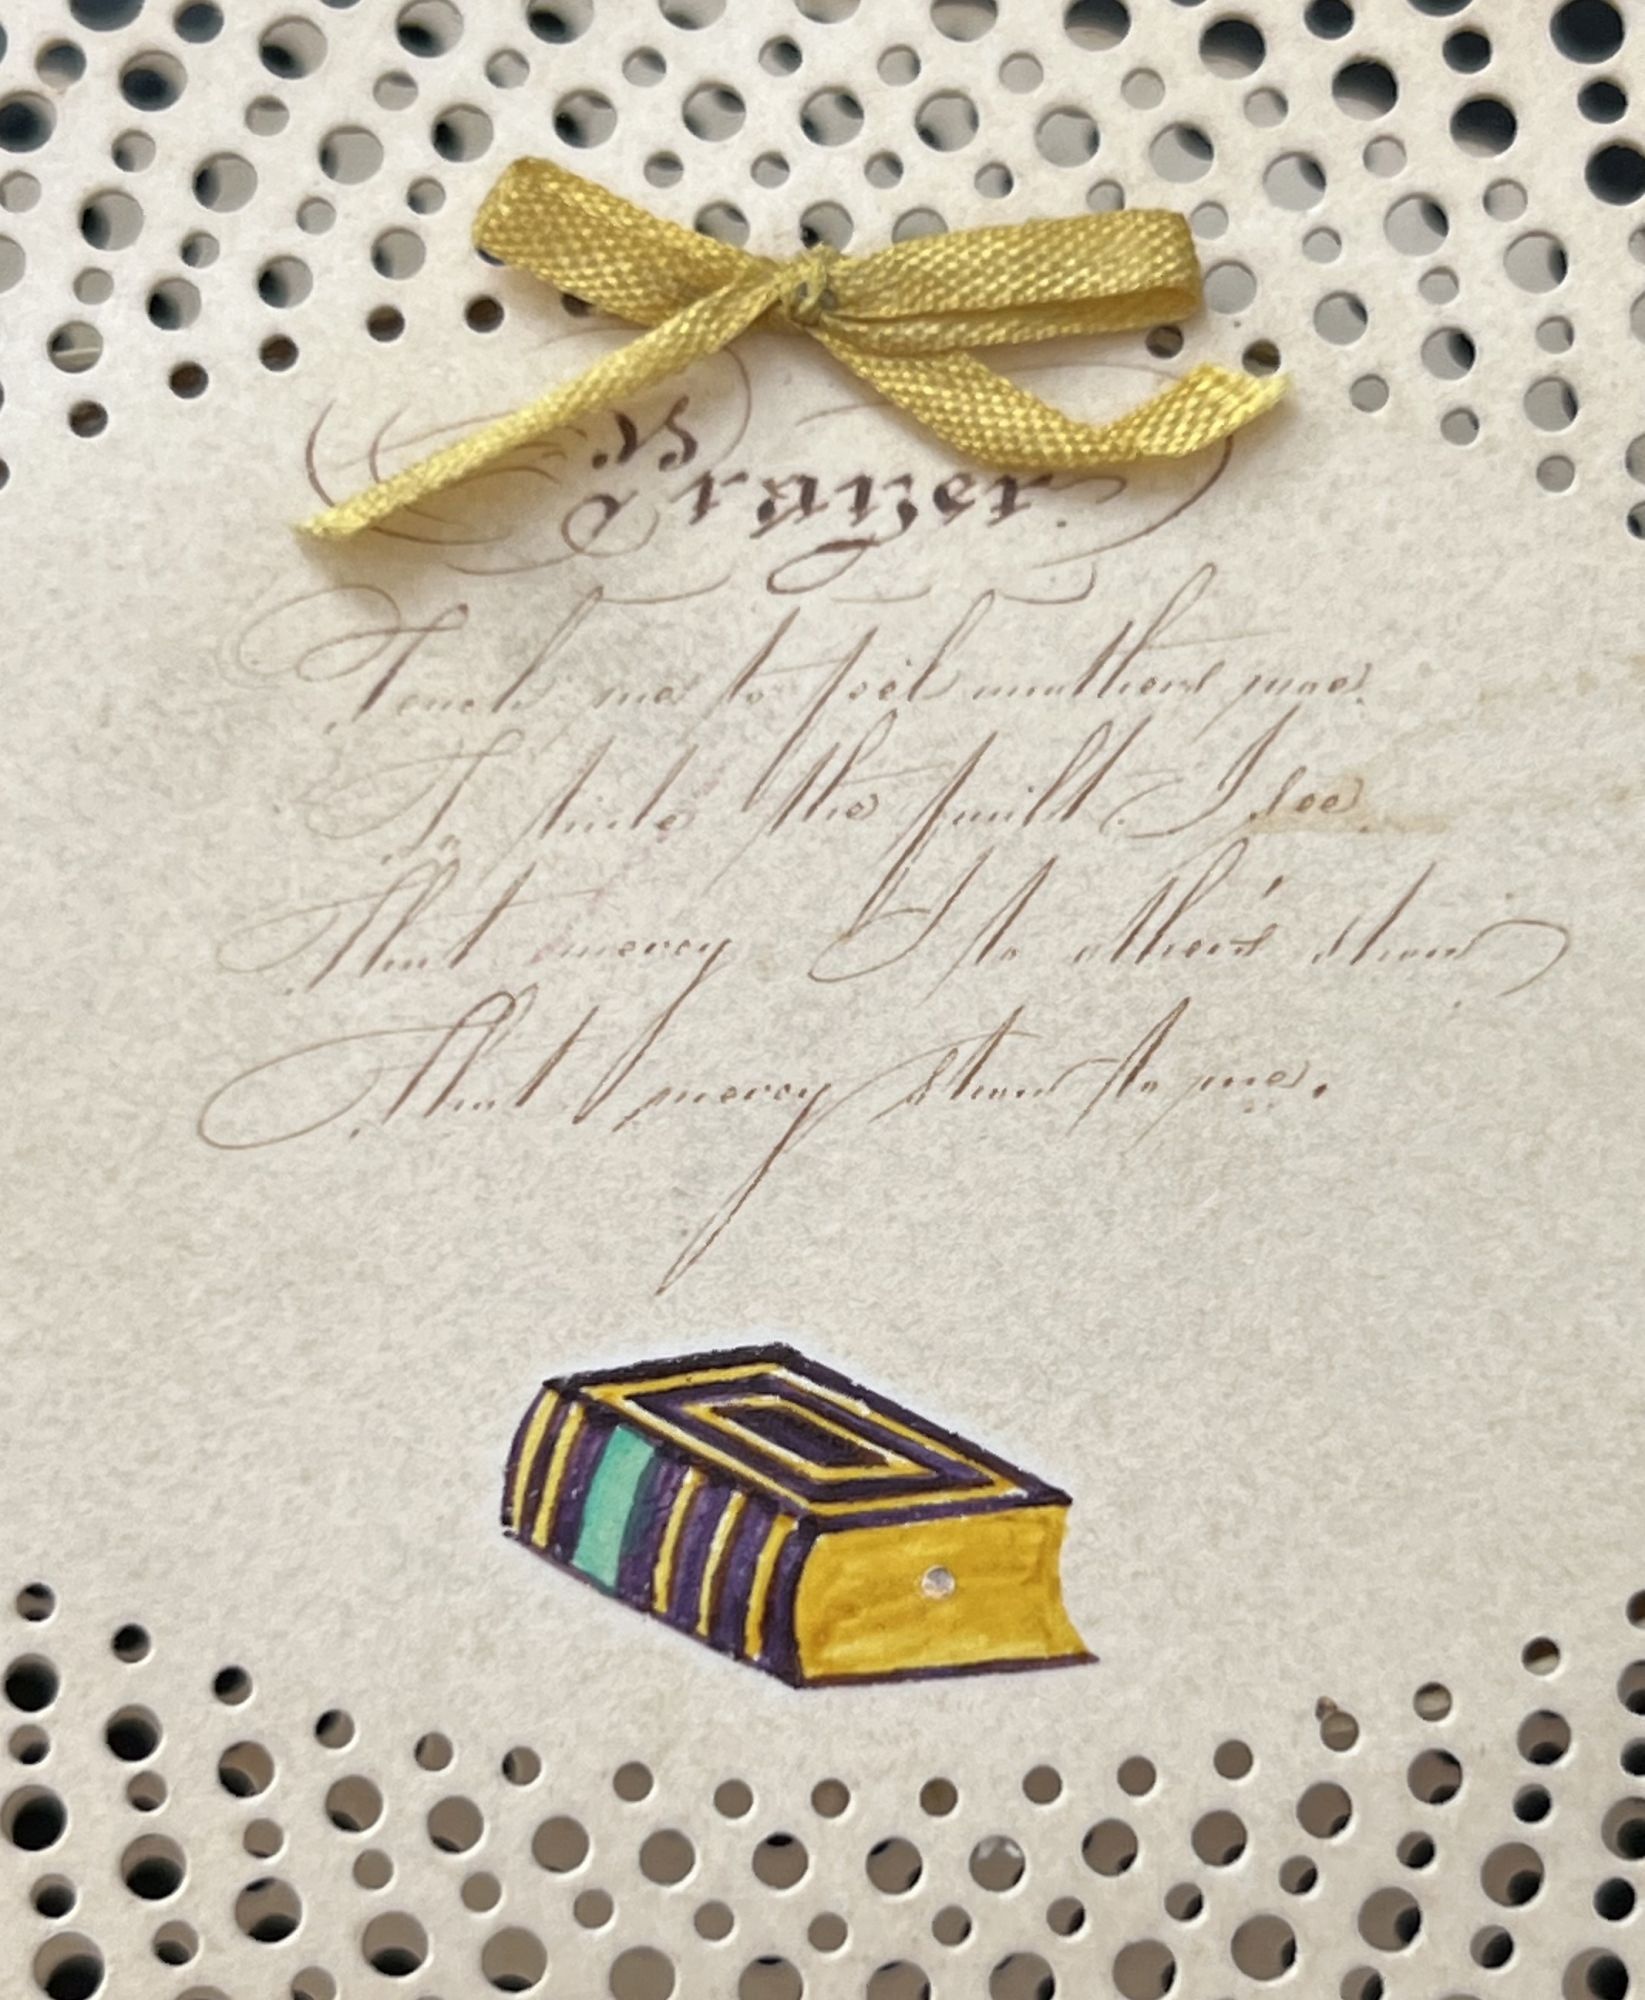 Prayer.
Teach me to feel anothers woe.
To hide the fault I see.
That mercy I to other's show
That mercy show to me.